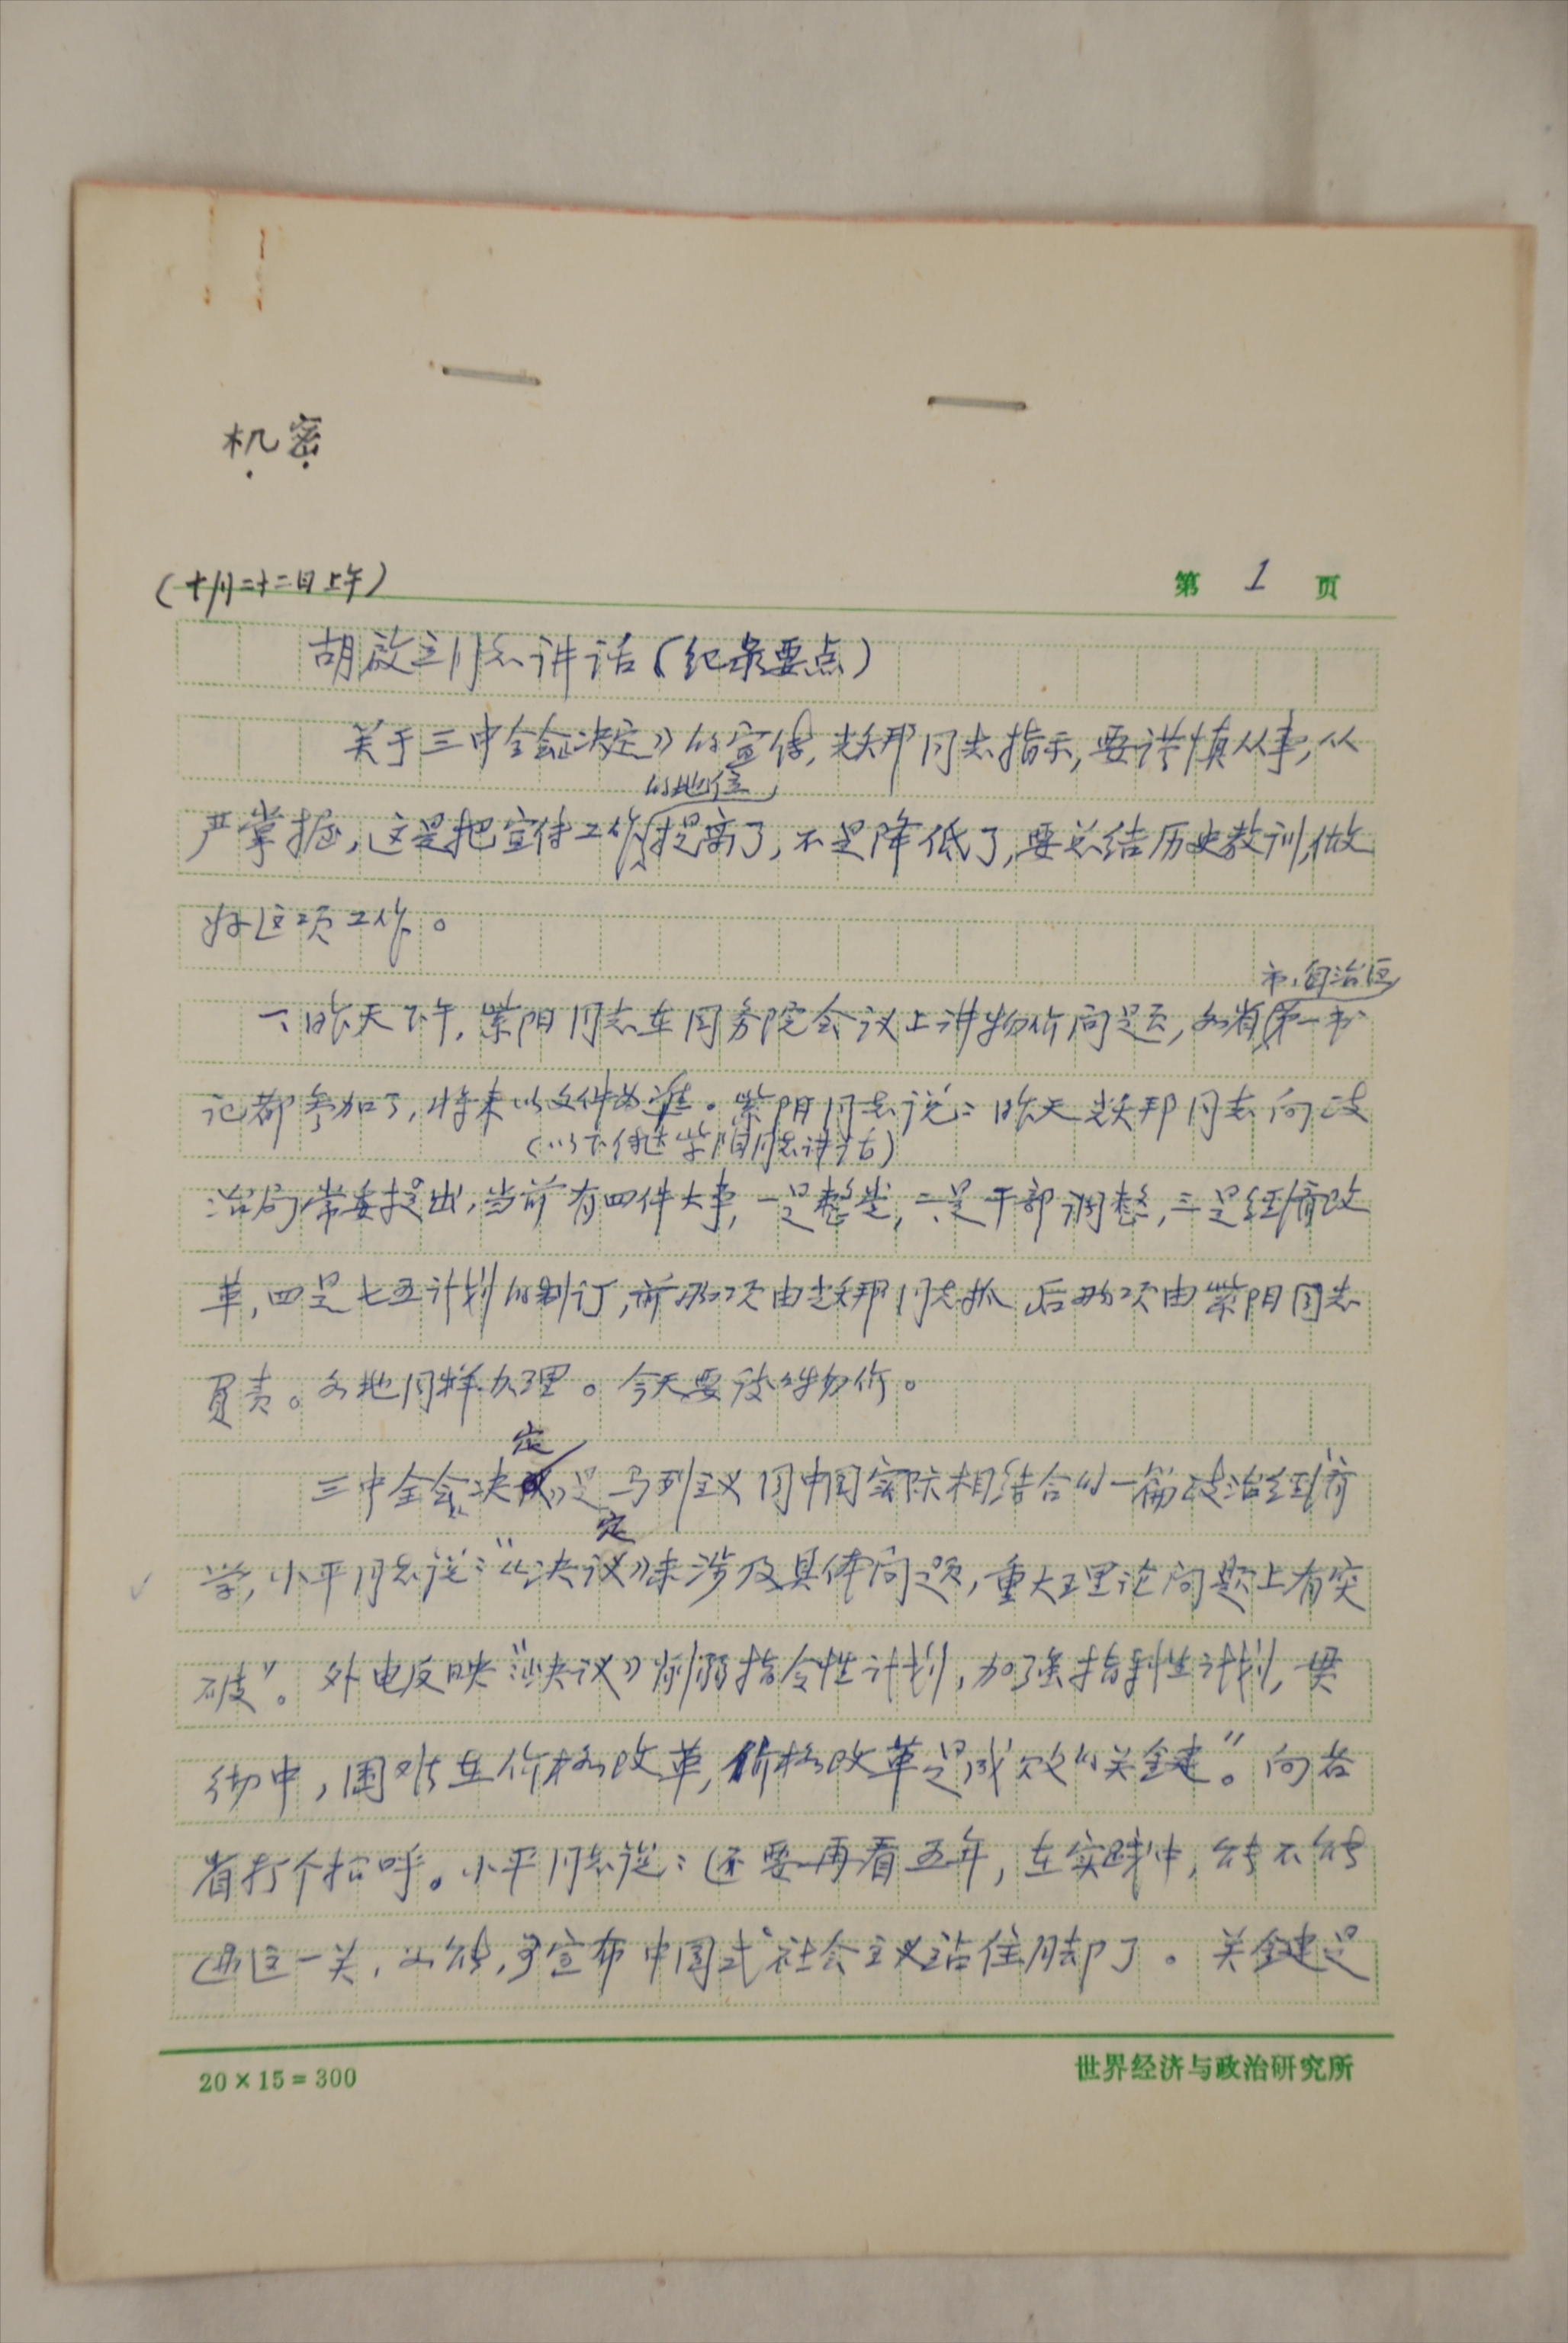 机密
(十月二十二日上午)
第 1 页
胡启立同志讲话(纪录要点)
关于三中全会《决定》的宣传,耀邦同志指示,要谨慎从事,从
的地位
严掌握,这是把宣传工作提高了,不是降低了,要总结历史教训,做
好这项工作。
市、自治区
一、昨天下午,紫阳同志在国务院会议上讲物价问题,各省第一书
记都参加了,将来以文件为准。紫阳同志说:昨天耀邦同志向政
(以下传达紫阳同志讲话)
治局常委提出,当前有四件大事,一是整党,二是干部调整,三是经济改
革,四是七五计划的制订,前两项由耀邦同志抓 后两项由紫阳同志
负责。各地同样办理。今天要谈谈物价。
定
三中全会《决议》是马列主义同中国实际相结合的一篇政治经济
定
学,小平同志说:“《决议》未涉及具体问题,重大理论问题上有突
破”。外电反映“《决议》削弱指令性计划,加强指导性计划,贯
彻中,困难在价格改革,价格改革是成败的关键”。向各
省打个招呼。小平同志说:还要再看五年,在实践中,能不能
过这一关,如能,可宣布中国式社会主义站住脚了。关键是
20×15=300
世界经济与政治研究所